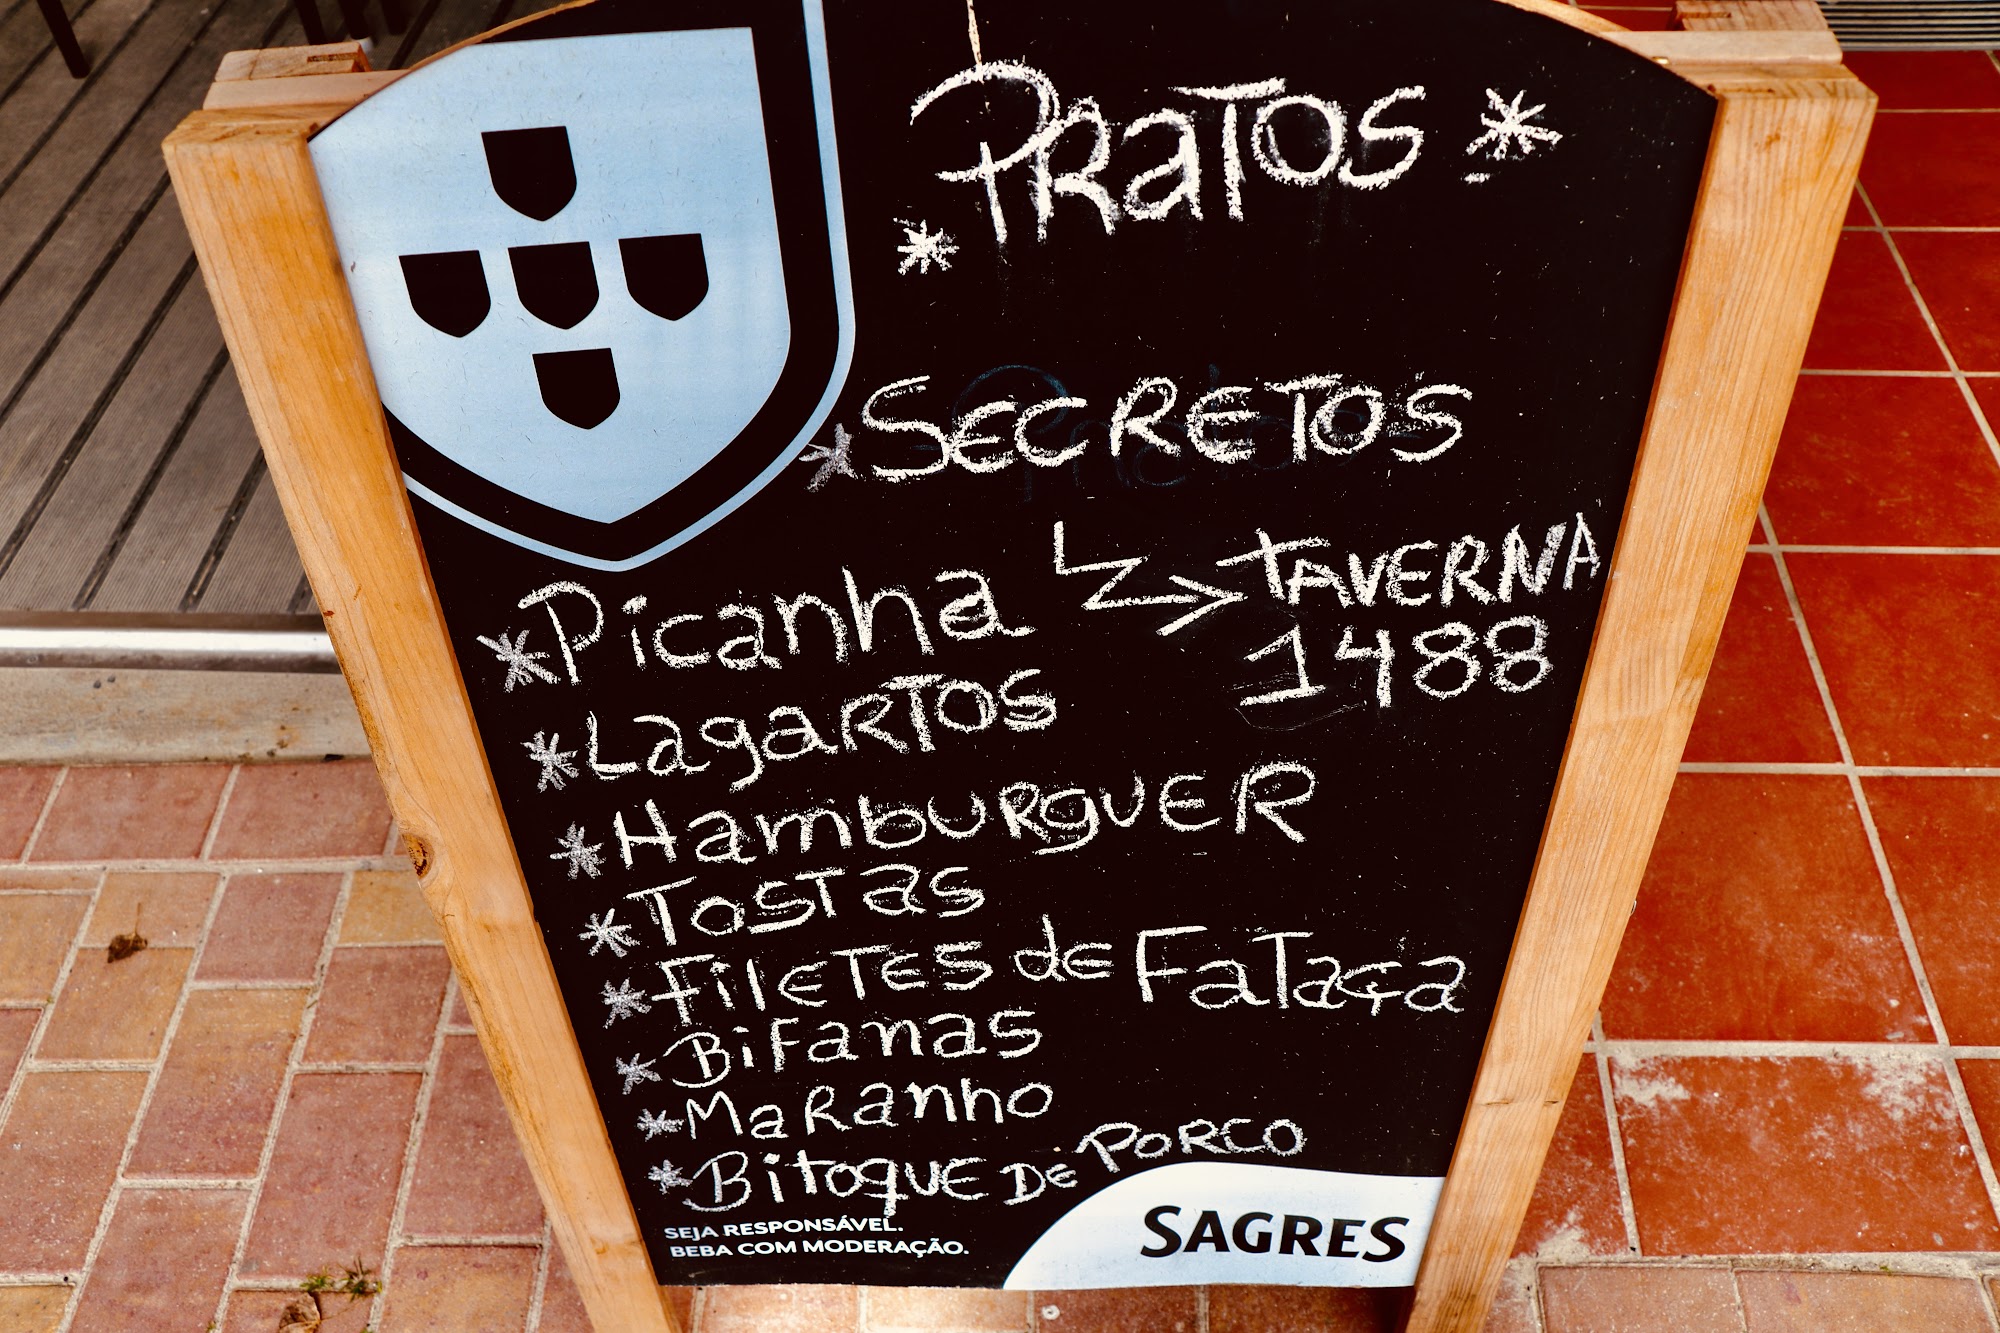 PRATOS
SECRETOS
Picanha
TAVERNA
1488
LagaRTOS
HambuRguER
TosTas
FilETES de FaTaça
BiFanas
MaRanho
BitoquE DE PORCO
SEJA RESPONSÁVEL.
BEBA COM MODERAÇÃO.
SAGRES